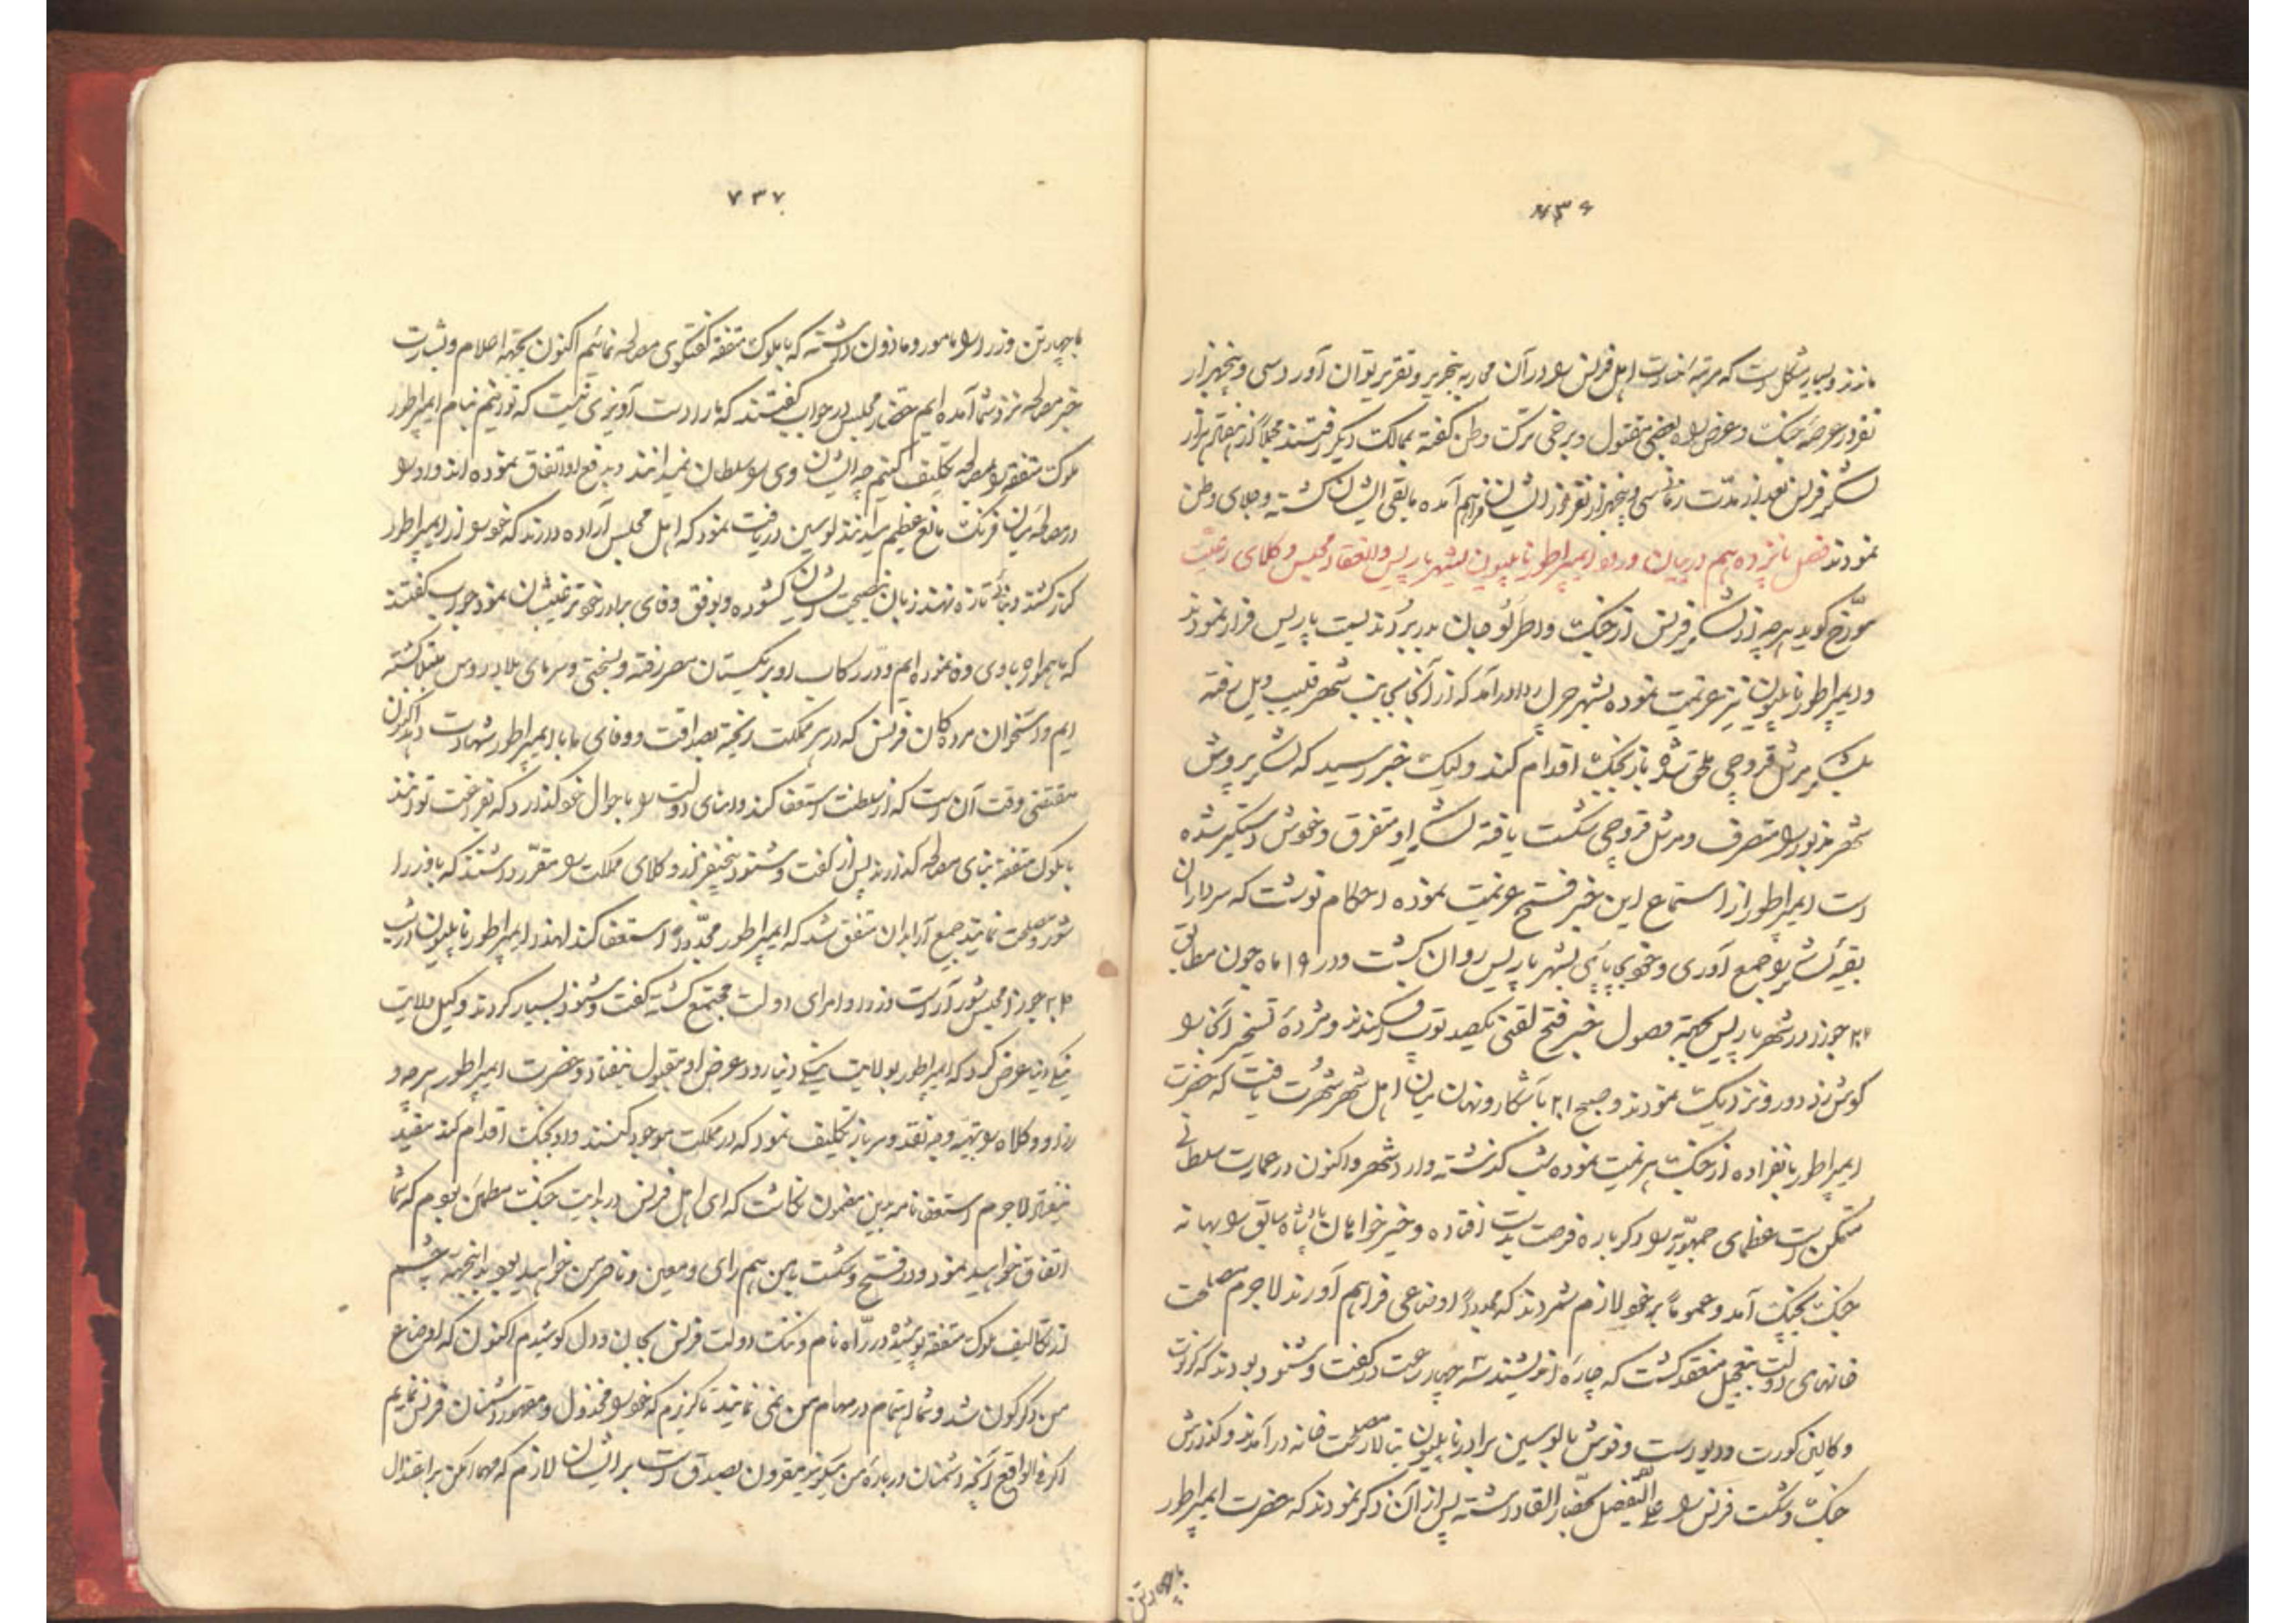 ۷۳۶
ماندند و بسیار مشکل است که مرتبه خسارت اهل فرنس را در آن محاربه بتحریر و تقریر توان آورد سی و پنجهزار
نفر در عرصه جنک و عرض راه بعضی مقتول و برخی ترکت وطن کفته بممالک دیکر رفتند مجملاً از هفتاد هزار
لشکر فرنس بعد از مدت زمانی سی و پنجهزار نفر از ایشان فراهم آمده مابقی ایشان کشته و جلای وطن
نمودند فصل پانزدهم در بیان ورود ایمپراطور ناپلیون بشهر پاریس و انعقاد مجلس وکلای رعیت
مورّخ کوید هر چه از لشکر فرنس از جنکت واطرلو جان بدر بردند بسمت پاریس فرار نمودند
و ایمپراطور ناپلیون نیز عزیمت نموده بشهر درآمد که از آنجا بجانب شهر رفته
بلشکر مرشل قروچی ملحق شده باز بجنکت اقدام کند ولیک خبر رسید که لشکر پروش
شهر مزبور را متصرف و مرشل قروچی شکست یافته لشکر او متفرق و خودش دستکیر شده
است ایمپراطور از استماع این خبر فسخ عزیمت نموده احکام نوشت که سرداران
بقیه لشکر را جمع آوری و خود بپای بشهر پاریس روان کشت و در ۱۹ ماه جون مطابق
جوزا در شهر پاریس بجهة وصول خبر فتح لقنی یکصد توپ افکندند و مژده تسخیر آنجا را
کوش زد دور و نزدیکت نمودند و صبح ۲۱ باشکار و نهان میان اهل شهر شهرت یافت که حضرت
ایمپراطور بانفراده از جنکت هزیمت نموده شب کذشته وارد شهر و اکنون در عمارت سلطانی
متمکن است عظمای جمهوریه را دکرباره فرصت بدست افتاده و خیرخواهان پادشاه سابق را بهانه
جنکت بچنکت آمد و عموماً بر خود لازم شمردند که مجدداً اوضاعی فراهم آورند لاجرم مصلحت
خانهای دولت بتعجیل منعقد کشت که چاره اندیشند سه چهار ساعت در کفت و شنود بودند که
و کالین کورت و داوست و فوش بالوسین برادر ناپلیون بتالار مصلحت خانه درآمدند و کذارش
جنکت و شکست فرنس را علی التفصیل بحضار القا داشته پس از آن ذکر نمودند که حضرت ایمپراطور
با چهار تن
۷۳۷
با چهار تن وزرا را مامور و ماذون داشته که با ملوک متفقه کفتکوی مصالحه نمائیم اکنون بجهة اعلام و بشارت
خبر مصالحه نزد شما آمده ایم حضار مجلس در جواب کفتند که ما را دست آویزی نیست که توانیم بنام ایمپراطور
ملوک متفقه را بمصالحه تکلیف کنیم چه ایشان وی را سلطان نمیدانند و بدفع او اتفاق نموده اند و او را
در مصالحه میان فرنکت مانع عظیم میدانند لوسین دریافت نمود که اهل مجلس اراده دارند که خود را از ایمپراطور
کنار کشند و بنای تازه نهند زبان بنصیحت ایشان کشوده و بوفق وفای برادر خود ترغیبشان نمود جواب کفتند
که ما همواره با وی وفا نموده ایم و در رکاب او بریکستان مصر رفته و بسختی و سرمای بلاد روس مبتلا کشته
ایم و استخوان مرده کان فرنس که در هر مملکت ریخته بصداقت و وفای ما با ایمپراطور شهادت دهد اکنون
مقتضی وقت آن است که از سلطنت استعفا کند و امنای دولت را باحوال خود کذارد که بفراغت توانند
با ملوک متفقه بنای مصالحه کذارند پس از کفت و شنود پنجنفر از وکلای مملکت را مقرر داشتند که با وزرا
شور و مصلحت نمایند جمیع آرا بدان متفق شد که ایمپراطور مجدداً استعفا کند لهذا ایمپراطور ناپلیون در شب
جوزا مجلس شور آراست وزرا و امرای دولت مجتمع کشته کفت و شنود بسیار کردند وکیل ولایت
ینکی دنیا عرض کرد که ایمپراطور بولایت ینکی دنیا رود عرض او مقبول نیفتاد و حضرت ایمپراطور هر چه و
زرا و وکلا را بتهیه وجه نقد و سرباز تکلیف نمود که در مملکت موجود کنند و او بجنکت اقدام کند مفید
نیفتاد لاجرم استعفانامه بدین مضمون نکاشت که ای اهل فرنس در بدایت جنکت مطمئن بودم که شما
اتفاق خواهید نمود و در فتح و شکست با من هم رای و معین و ناصر من خواهید بود بدینجهة چشم
از تکالیف ملوک متفقه پوشیده در راه نام و ننکت دولت فرنس بجان و دل کوشیدم اکنون که اوضاع
من دکرکون شد و شما اهتمام در مهام من نمی نمائید ناکزیرم که خود را مخذول و مقهور دشمنان فرنس نمایم
اکر فی الواقع آنچه دشمنان درباره من میکویند مقرون بصدق است بر ایشان لازم که مهما امکن بر اعتدال